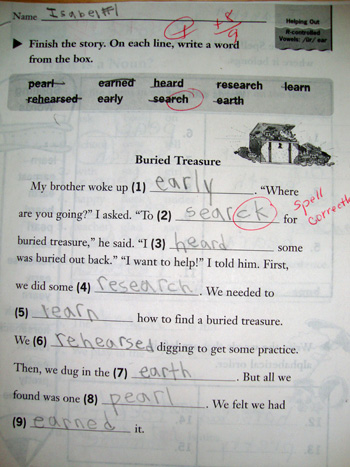 Name Isabel #1 +8/9
Helping Out
R-controlled
Vowels: /ûr/ ear
Finish the story. On each line, write a word
from the box.
pearl earned heard research learn
rehearsed early search earth
Buried Treasure
My brother woke up (1) early. “Where
are you going?” I asked. “To (2) searck for
spell
correctly
buried treasure,” he said. “I (3) heard some
was buried out back.” “I want to help!” I told him. First,
we did some (4) research. We needed to
(5) learn how to find a buried treasure.
We (6) rehearsed digging to get some practice.
Then, we dug in the (7) earth. But all we
found was one (8) pearl. We felt we had
(9) earned it.